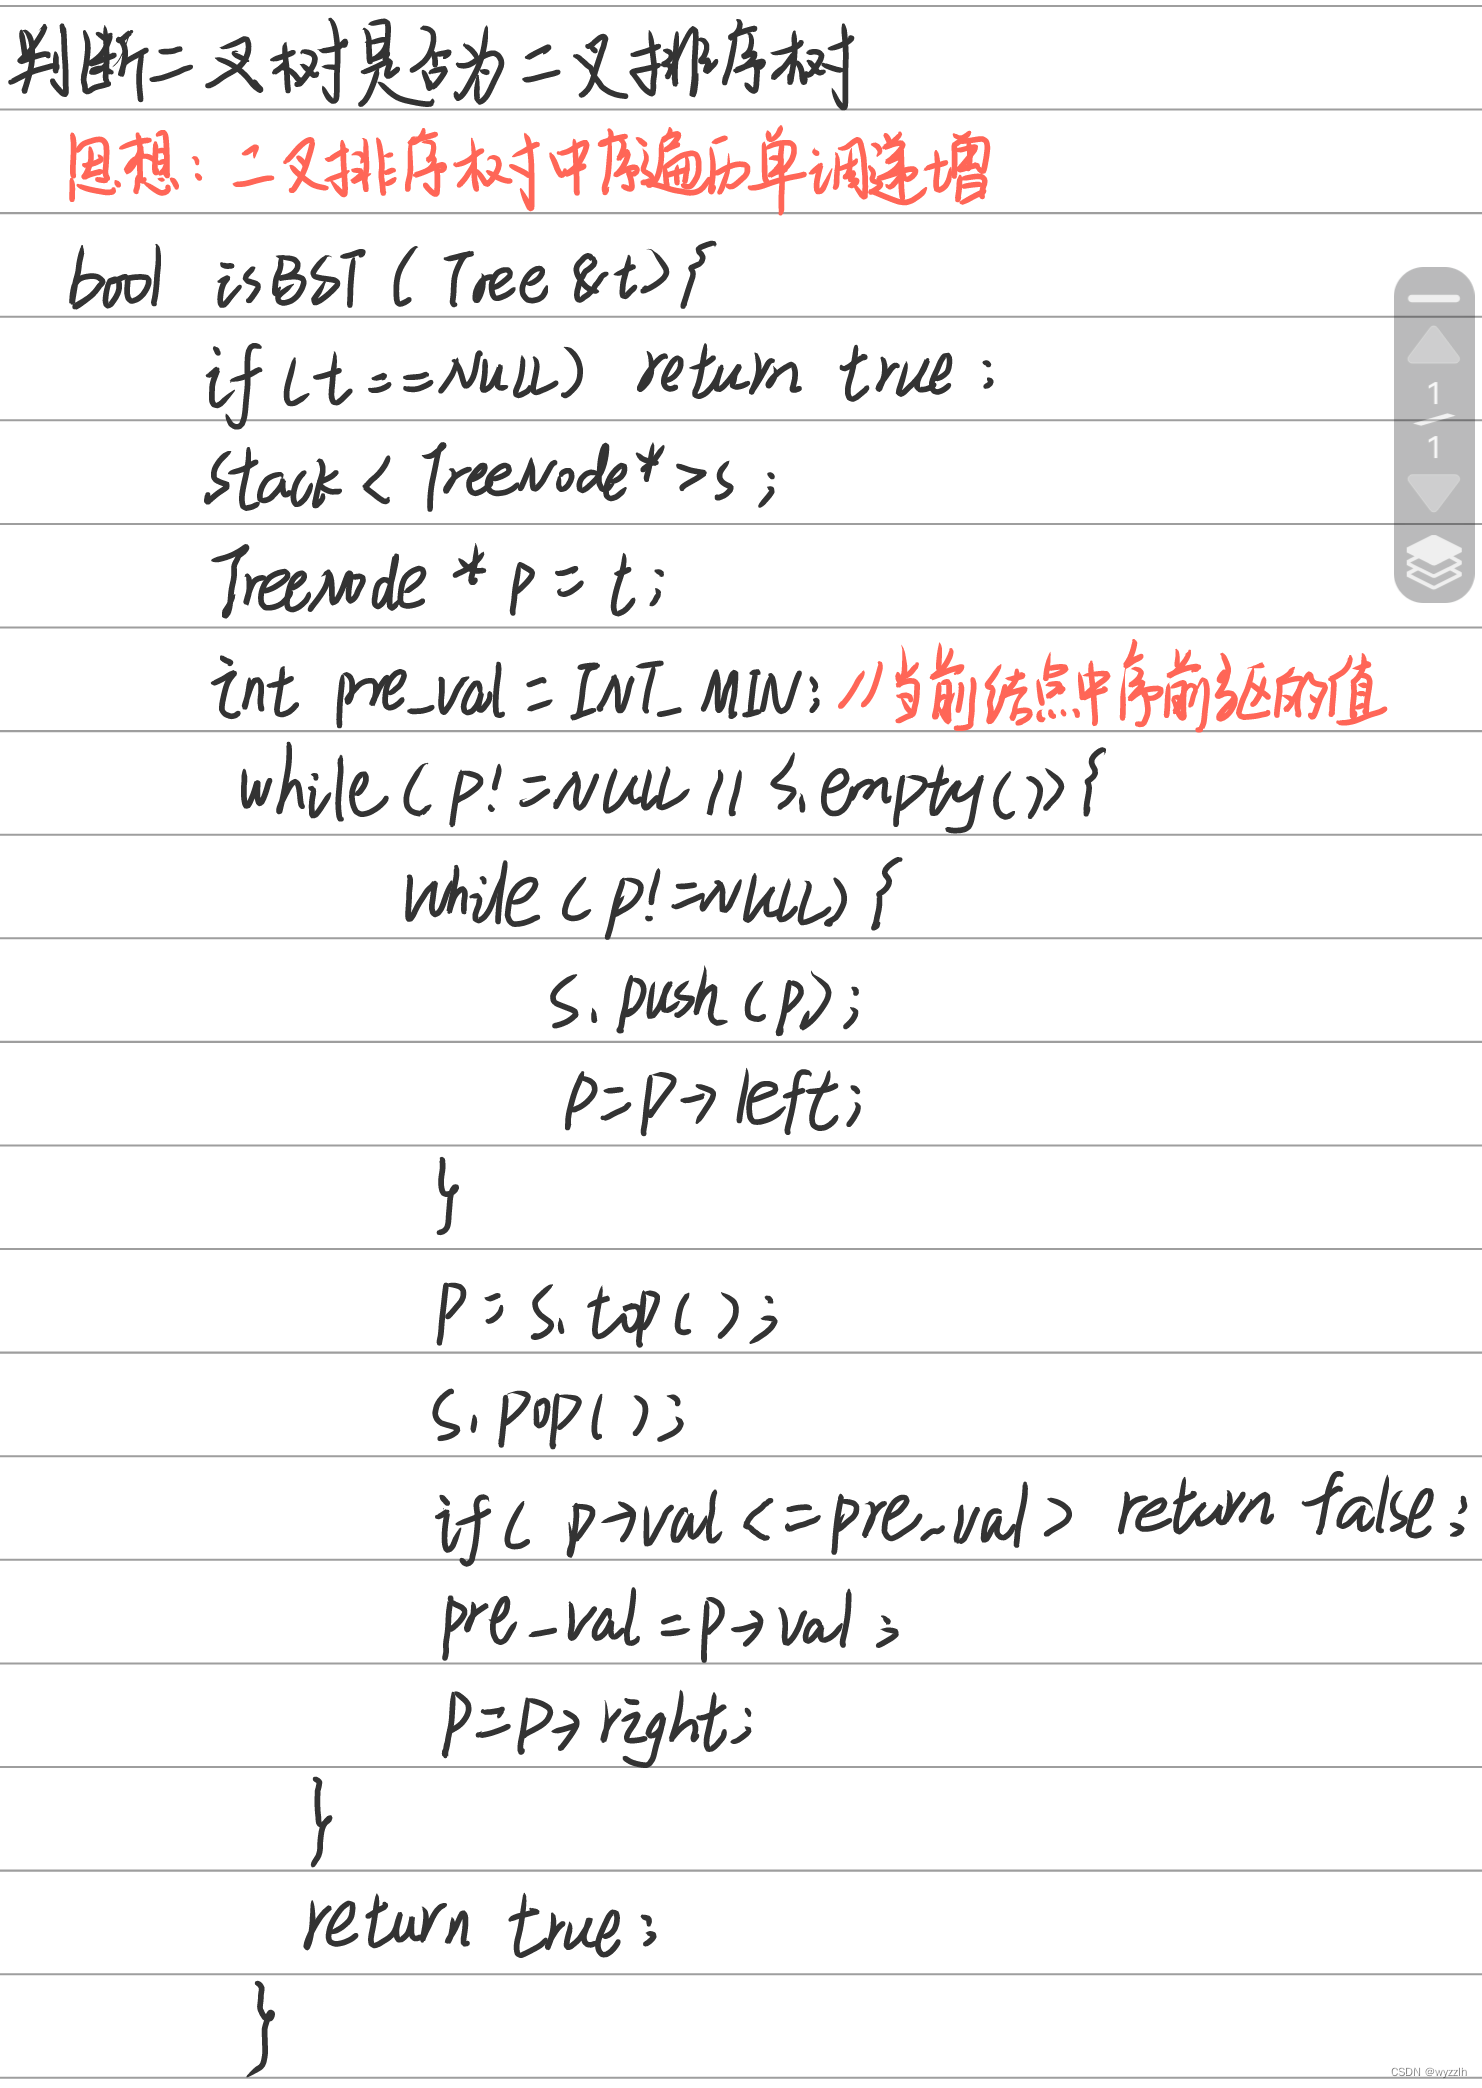 判断二叉树是否为二叉排序树
思想：二叉排序树中序遍历单调递增
bool isBST ( Tree &t){
if (t==NULL) return true;
stack < TreeNode* >s;
TreeNode * p = t;
int pre_val = INT_MIN; //当前结点中序前驱的值
while ( p!=NULL || s.empty()){
while ( p!=NULL) {
s.push(p);
p=p→left;
}
p = s.top();
s.pop();
if( p→val <=pre_val) return false;
pre_val=p→val;
p=p→right;
}
return true;
}
1
1
CSDN @wyzzlh